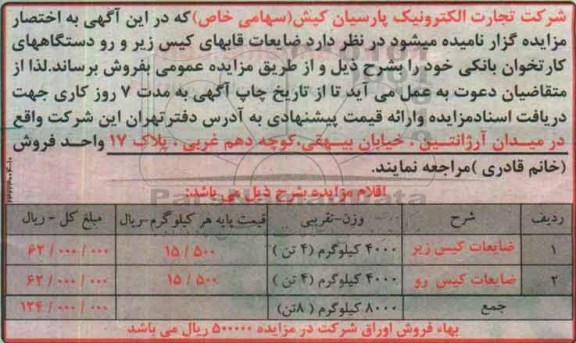 شرکت تجارت الکترونیک پارسیان کیش(سهامی خاص)که در این آگهی به اختصار
مزایده گزار نامیده میشود در نظر دارد ضایعات قابهای کیس زیر و رو دستگاههای
کارتخوان بانکی خود را بشرح ذیل و از طریق مزایده عمومی بفروش برساند.لذا از
متقاضیان دعوت به عمل می آید تا از تاریخ چاپ آگهی به مدت ۷ روز کاری جهت
دریافت اسنادمزایده وارائه قیمت پیشنهادی به آدرس دفترتهران این شرکت واقع
در میدان آرژانتین ، خیابان بیهقی،کوچه دهم غربی ، پلاک ۱۷ واحد فروش
(خانم قادری )مراجعه نمایند.
اقلام مزایده بشرح ذیل می باشد:
ردیف شرح وزن-تقریبی قیمت پایه هر کیلوگرم-ریال مبلغ کل - ریال
۱ ضایعات کیس زیر ۴۰۰۰ کیلوگرم (۴ تن ) ۱۵/۵۰۰ ۶۲/۰۰۰/۰۰۰
۲ ضایعات کیس رو ۴۰۰۰ کیلوگرم (۴ تن ) ۱۵/۵۰۰ ۶۲/۰۰۰/۰۰۰
جمع ۸۰۰۰ کیلوگرم (۸تن) ۱۲۴/۰۰۰/۰۰۰
بهاء فروش اوراق شرکت در مزایده ۵۰۰۰۰۰ ریال می باشد